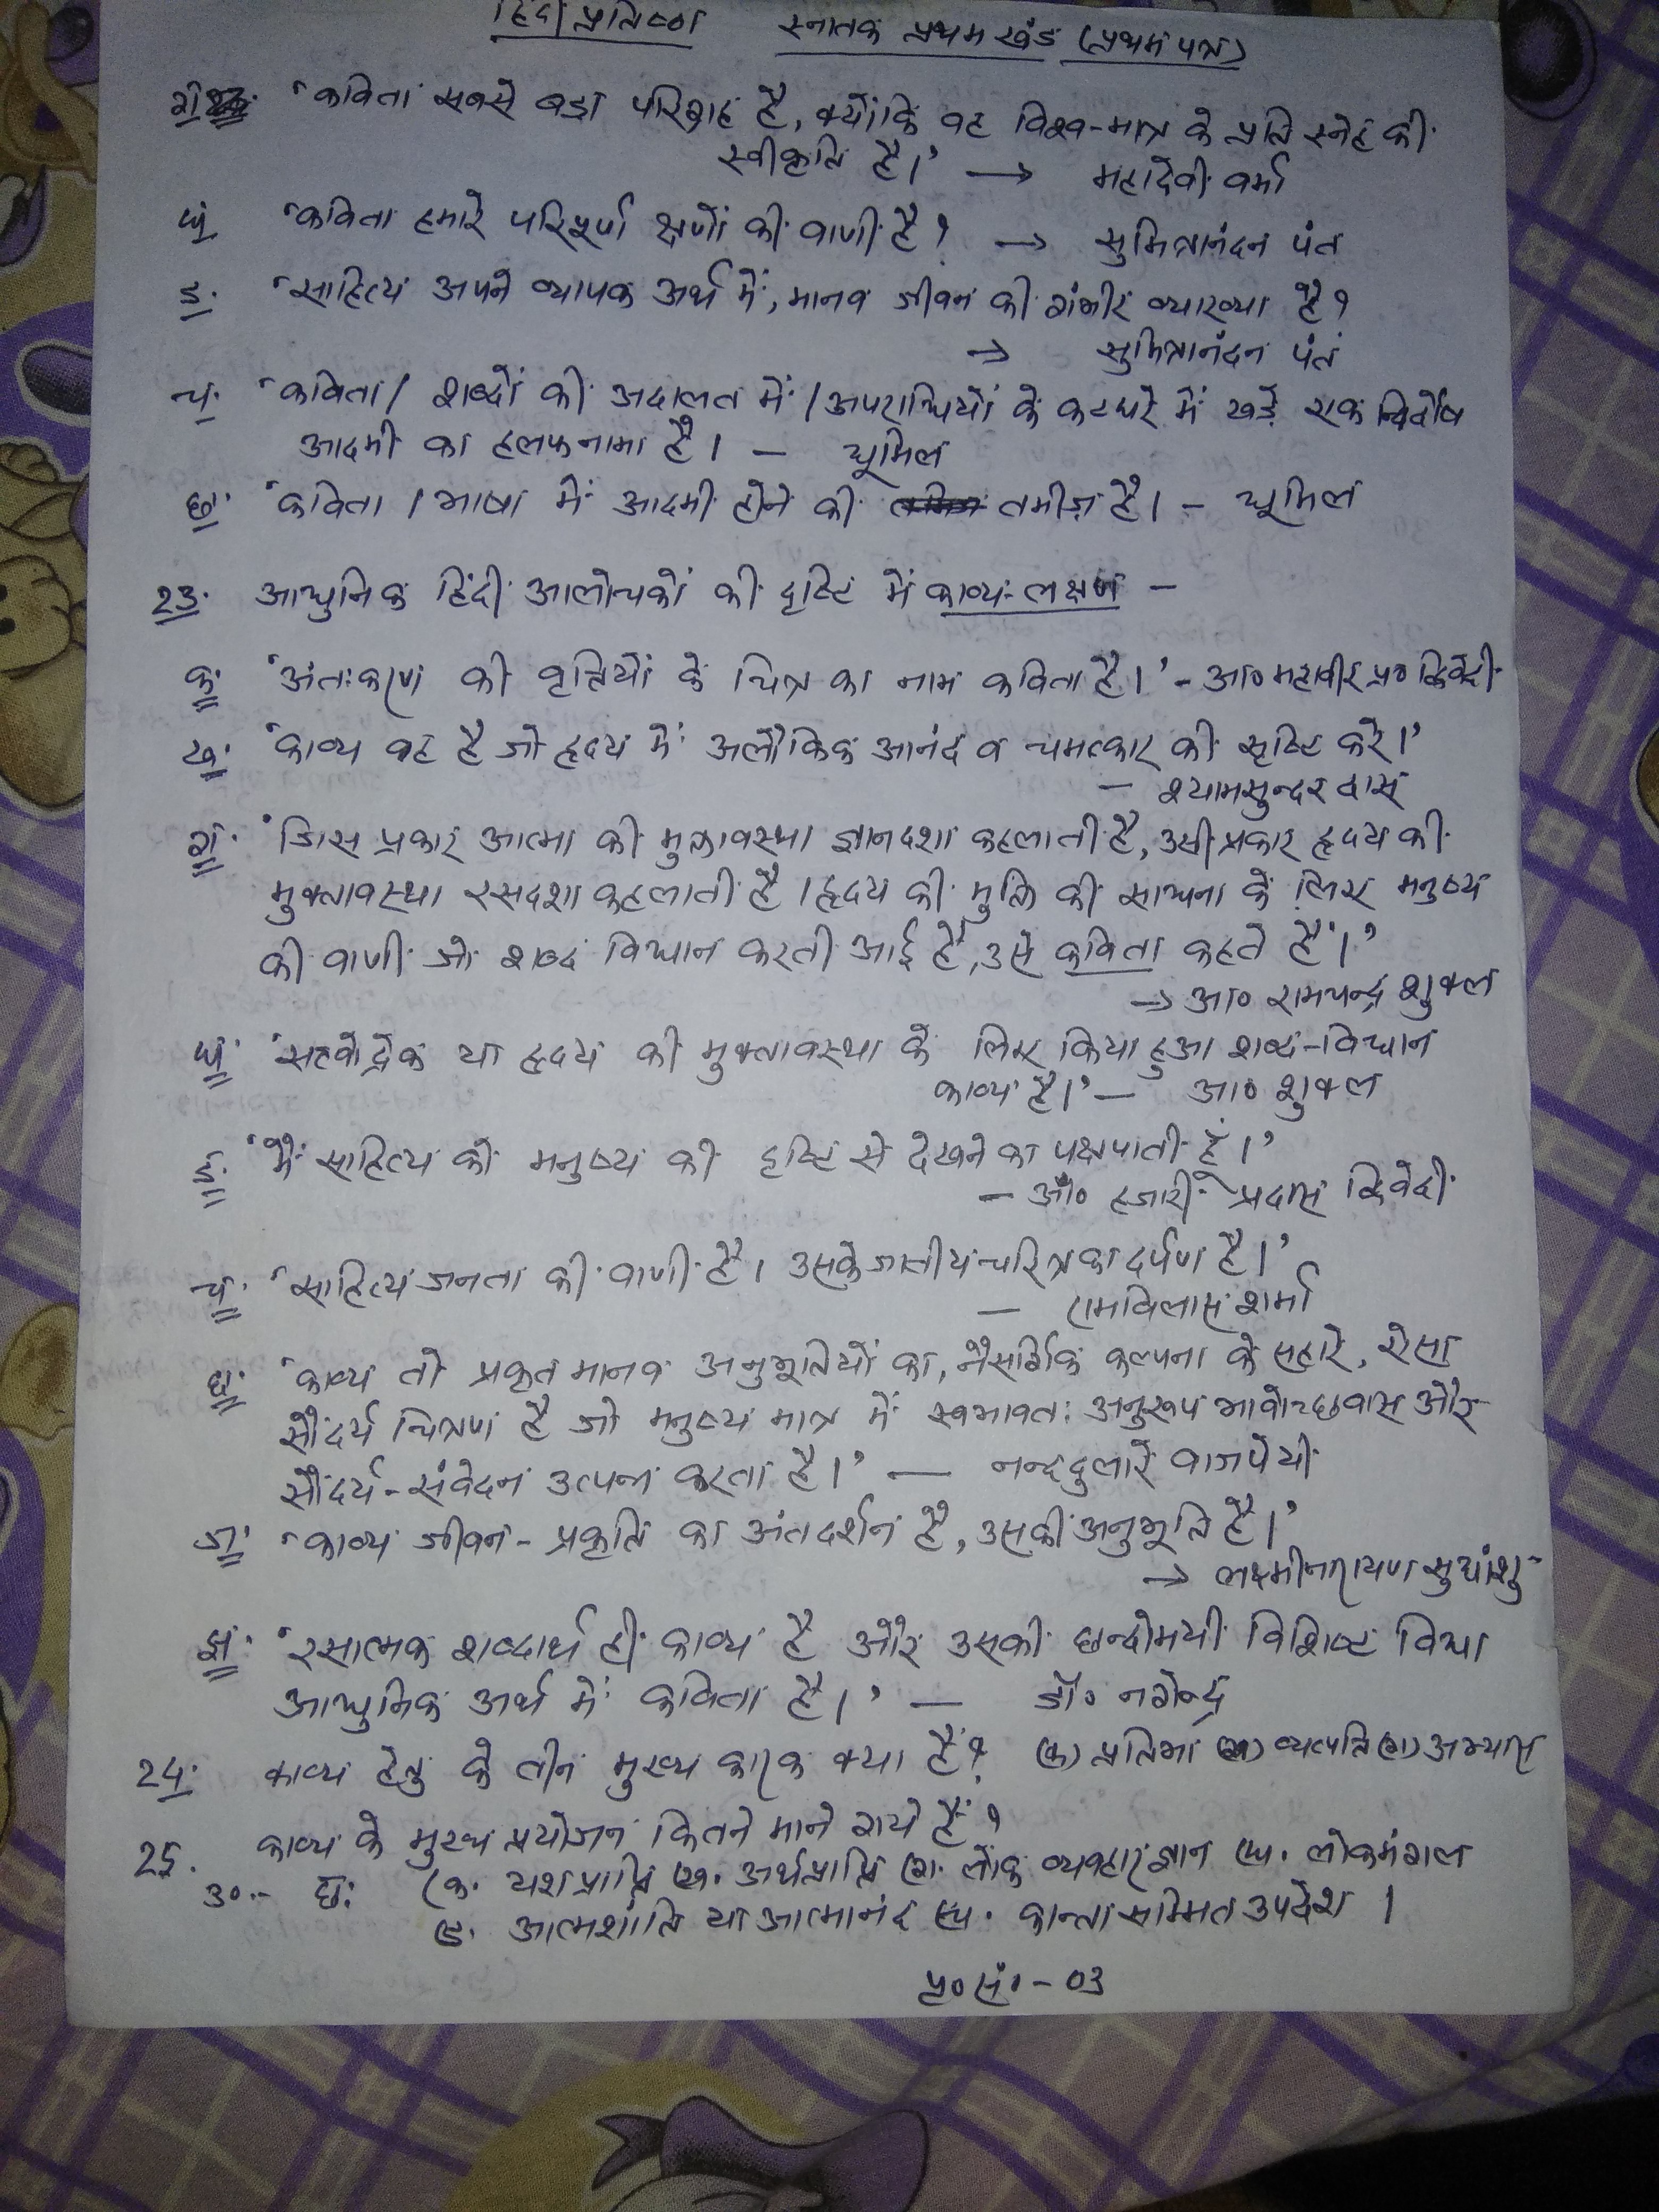 हिंदी प्रतिष्ठा स्नातक प्रथम खंड (प्रथम पत्र)
ग. 'कविता सबसे बड़ा परिग्रह है, क्योंकि वह विश्व-मात्र के प्रति स्नेह की
स्वीकृति है।' → महादेवी वर्मा
घ. 'कविता हमारे परिपूर्ण क्षणों की वाणी है' → सुमित्रानंदन पंत
ङ. 'साहित्य अपने व्यापक अर्थ में, मानव जीवन की गंभीर व्याख्या है'
→ सुमित्रानंदन पंत
च. 'कविता / शब्दों की अदालत में / अपराधियों के कटघरे में खड़े एक निर्दोष
आदमी का हलफनामा है। - धूमिल
छ. 'कविता / भाषा में आदमी होने की तमीज़ है। - धूमिल
23. आधुनिक हिंदी आलोचकों की दृष्टि में काव्य-लक्षण -
क. 'अंतःकरण की वृत्तियों के चित्र का नाम कविता है।' - आ० महावीर प्र० द्विवेदी
ख. 'काव्य वह है जो हृदय में अलौकिक आनंद व चमत्कार की सृष्टि करे।'
- श्यामसुन्दर दास
ग. 'जिस प्रकार आत्मा की मुक्तावस्था ज्ञानदशा कहलाती है, उसी प्रकार हृदय की
मुक्तावस्था रसदशा कहलाती है। हृदय की मुक्ति की साधना के लिए मनुष्य
की वाणी जो शब्द विधान करती आई है, उसे कविता कहते हैं।'
→ आ० रामचन्द्र शुक्ल
घ. 'सत्वोद्रेक या हृदय की मुक्तावस्था के लिए किया हुआ शब्द-विधान
काव्य है।' - आ० शुक्ल
ङ. 'मैं साहित्य को मनुष्य की दृष्टि से देखने का पक्षपाती हूँ।'
- आ० हजारी प्रसाद द्विवेदी
च. 'साहित्य जनता की वाणी है। उसके जातीय चरित्र का दर्पण है।'
- रामविलास शर्मा
छ. 'काव्य तो प्रकृत मानव अनुभूतियों का, नैसर्गिक कल्पना के सहारे, ऐसा
सौंदर्य चित्रण है जो मनुष्य मात्र में स्वभावतः अनुरूप भावोच्छवास और
सौंदर्य-संवेदन उत्पन्न करता है।' - नन्ददुलारे वाजपेयी
ज. 'काव्य जीवन-प्रकृति का अंतदर्शन है, उसकी अनुभूति है।'
→ लक्ष्मीनारायण सुधांशु
झ. 'रसात्मक शब्दार्थ ही काव्य है और उसकी छन्दोमयी विशिष्ट विधा
आधुनिक अर्थ में कविता है।' - डॉ० नगेन्द्र
24. काव्य हेतु के तीन मुख्य कारक क्या हैं? (क) प्रतिभा (ख) व्युत्पत्ति (ग) अभ्यास
25. काव्य के मुख्य प्रयोजन कितने माने गये हैं?
उ०- छः (क. यश प्राप्ति (ख. अर्थप्राप्ति (ग. लोक व्यवहार ज्ञान (घ. लोकमंगल
(ङ. आत्मशांति या आत्मानंद (च. कान्ता सम्मित उपदेश ।
पृ० सं० - 03